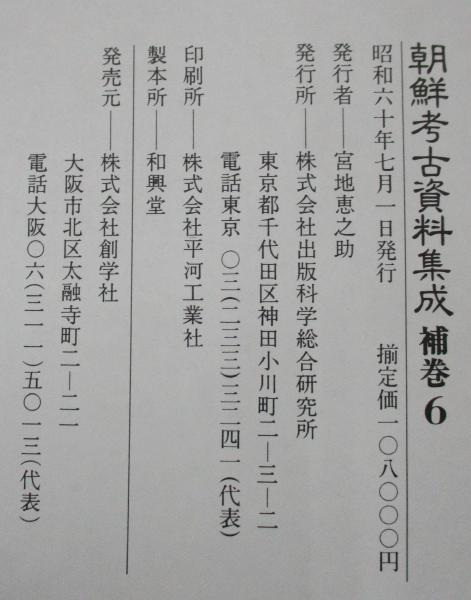 朝鮮考古資料集成 補巻6
昭和六十年七月一日発行 揃定価一〇八〇〇〇円
発行者――宮地恵之助
発行所――株式会社出版科学総合研究所
東京都千代田区神田小川町二―三―二
電話東京 〇三(二三三)三二四一(代表)
印刷所――株式会社平河工業社
製本所――和興堂
発売元――株式会社創学社
大阪市北区太融寺町二―二一
電話大阪〇六(三一一)五〇一三(代表)